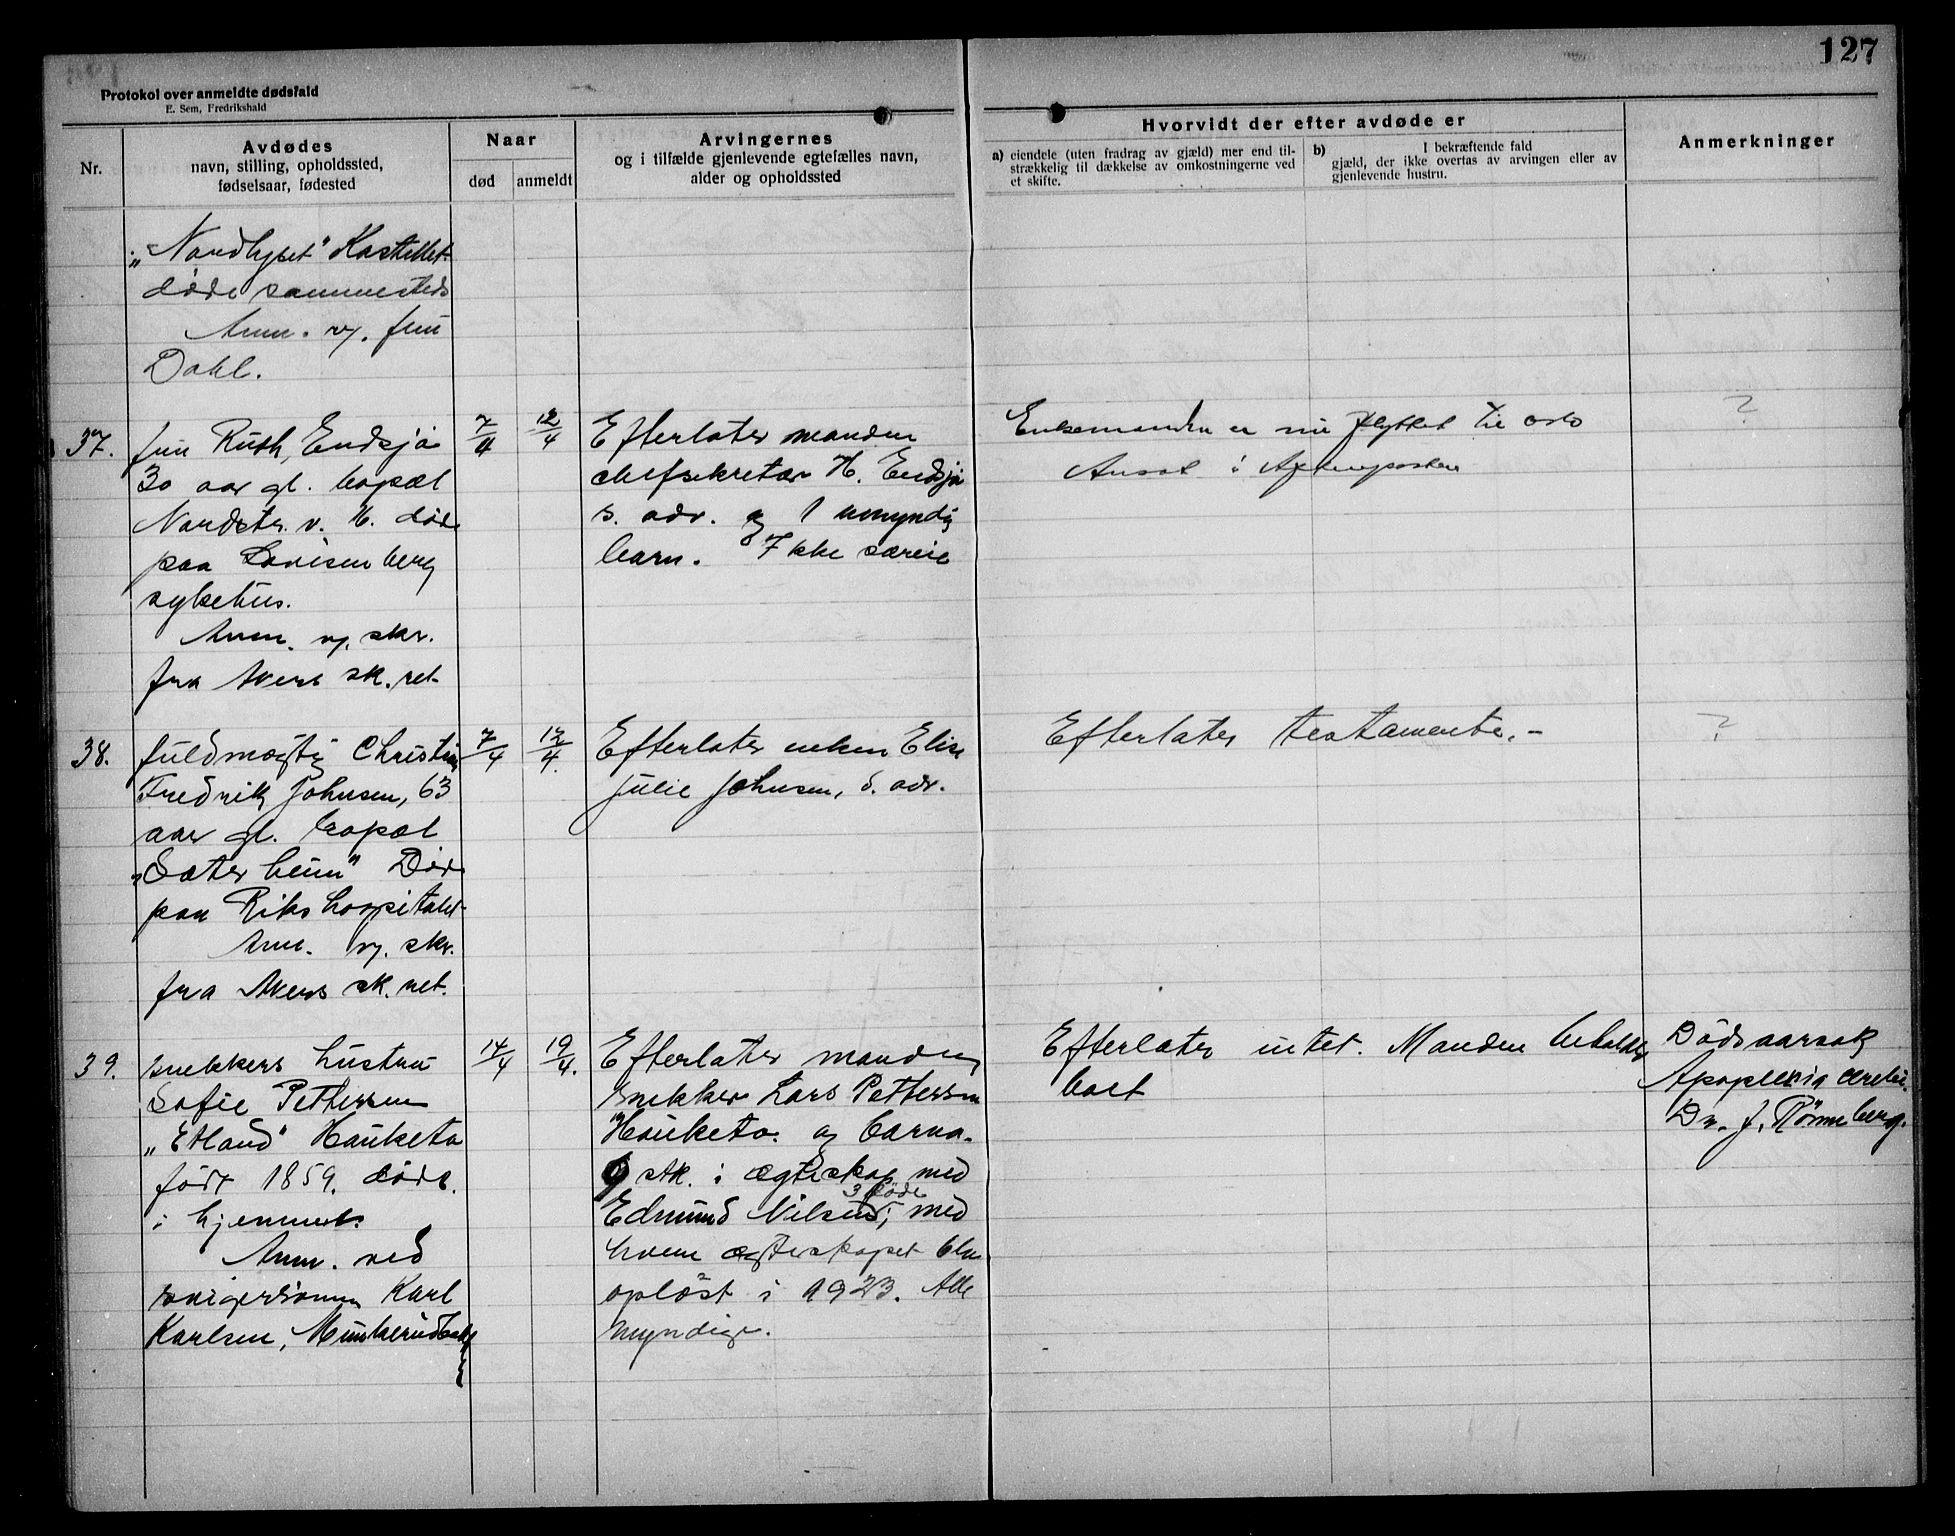 127
Protokol over anmeldte dødsfald
E. Sem, Fredrikshald
Nr.
Avdødes
navn, stilling, opholdssted,
fødselsaar, fødested
Naar
død
anmeldt
Arvingernes
og i tilfælde gjenlevende egtefælles navn,
alder og opholdssted
Hvorvidt der efter avdøde er
a) eiendele (uten fradrag av gjæld) mer end til-
strækkelig til dækkelse av omkostningerne ved
et skifte.
b) I bekræftende fald
gjæld, der ikke overtas av arvingen eller av
gjenlevende hustru.
Anmerkninger
"Nordlyset" Kastellet
døde sammesteds
Anm. v. fru
Dahl.
37.
fru Ruth Endsjø
30 aar gl. bopæl
Nordstr. v. 16. døde
paa Lovisenberg
sykehus.
Anm. v. skr.
fra Akers sk. ret
7/4
12/4
Efterlater manden
chefsekretær H. Endsjø
s. adr. og 1 umyndig
barn. Ikke særeie
Enkemanden er nu flyttet til Oslo
Ansat i Aftenposten
?
38.
fuldmægtig Christian
Fredrik Johnsen, 63
aar gl. bopæl
"Sæterheim" Døde
paa Rikshospitalet
Anm. v. skr.
fra Akers sk. ret.
7/4
12/4.
Efterlater enken Elise
Julie Johnsen, s. adr.
Efterlater testamente.-
?
39.
snekkers hustru
Sofie Pettersen
Hauketo
født 1859. døde
i hjemmet.
Anm. ved
svigersønnen Karl
Karlsen,
14/4
19/4.
Efterlater manden
snekker Lars Pettersen
Hauketo. og barna.
9 stk. i ægteskap med
3 døde
Edmund Nilsen; med
hvem ægteskapet blev
opløst i 1923. Alle
myndige.
Efterlater intet. Manden beholder
boet
Dødsaarsak
Apoplexia cerebri.
Dr. J. Rønneberg.